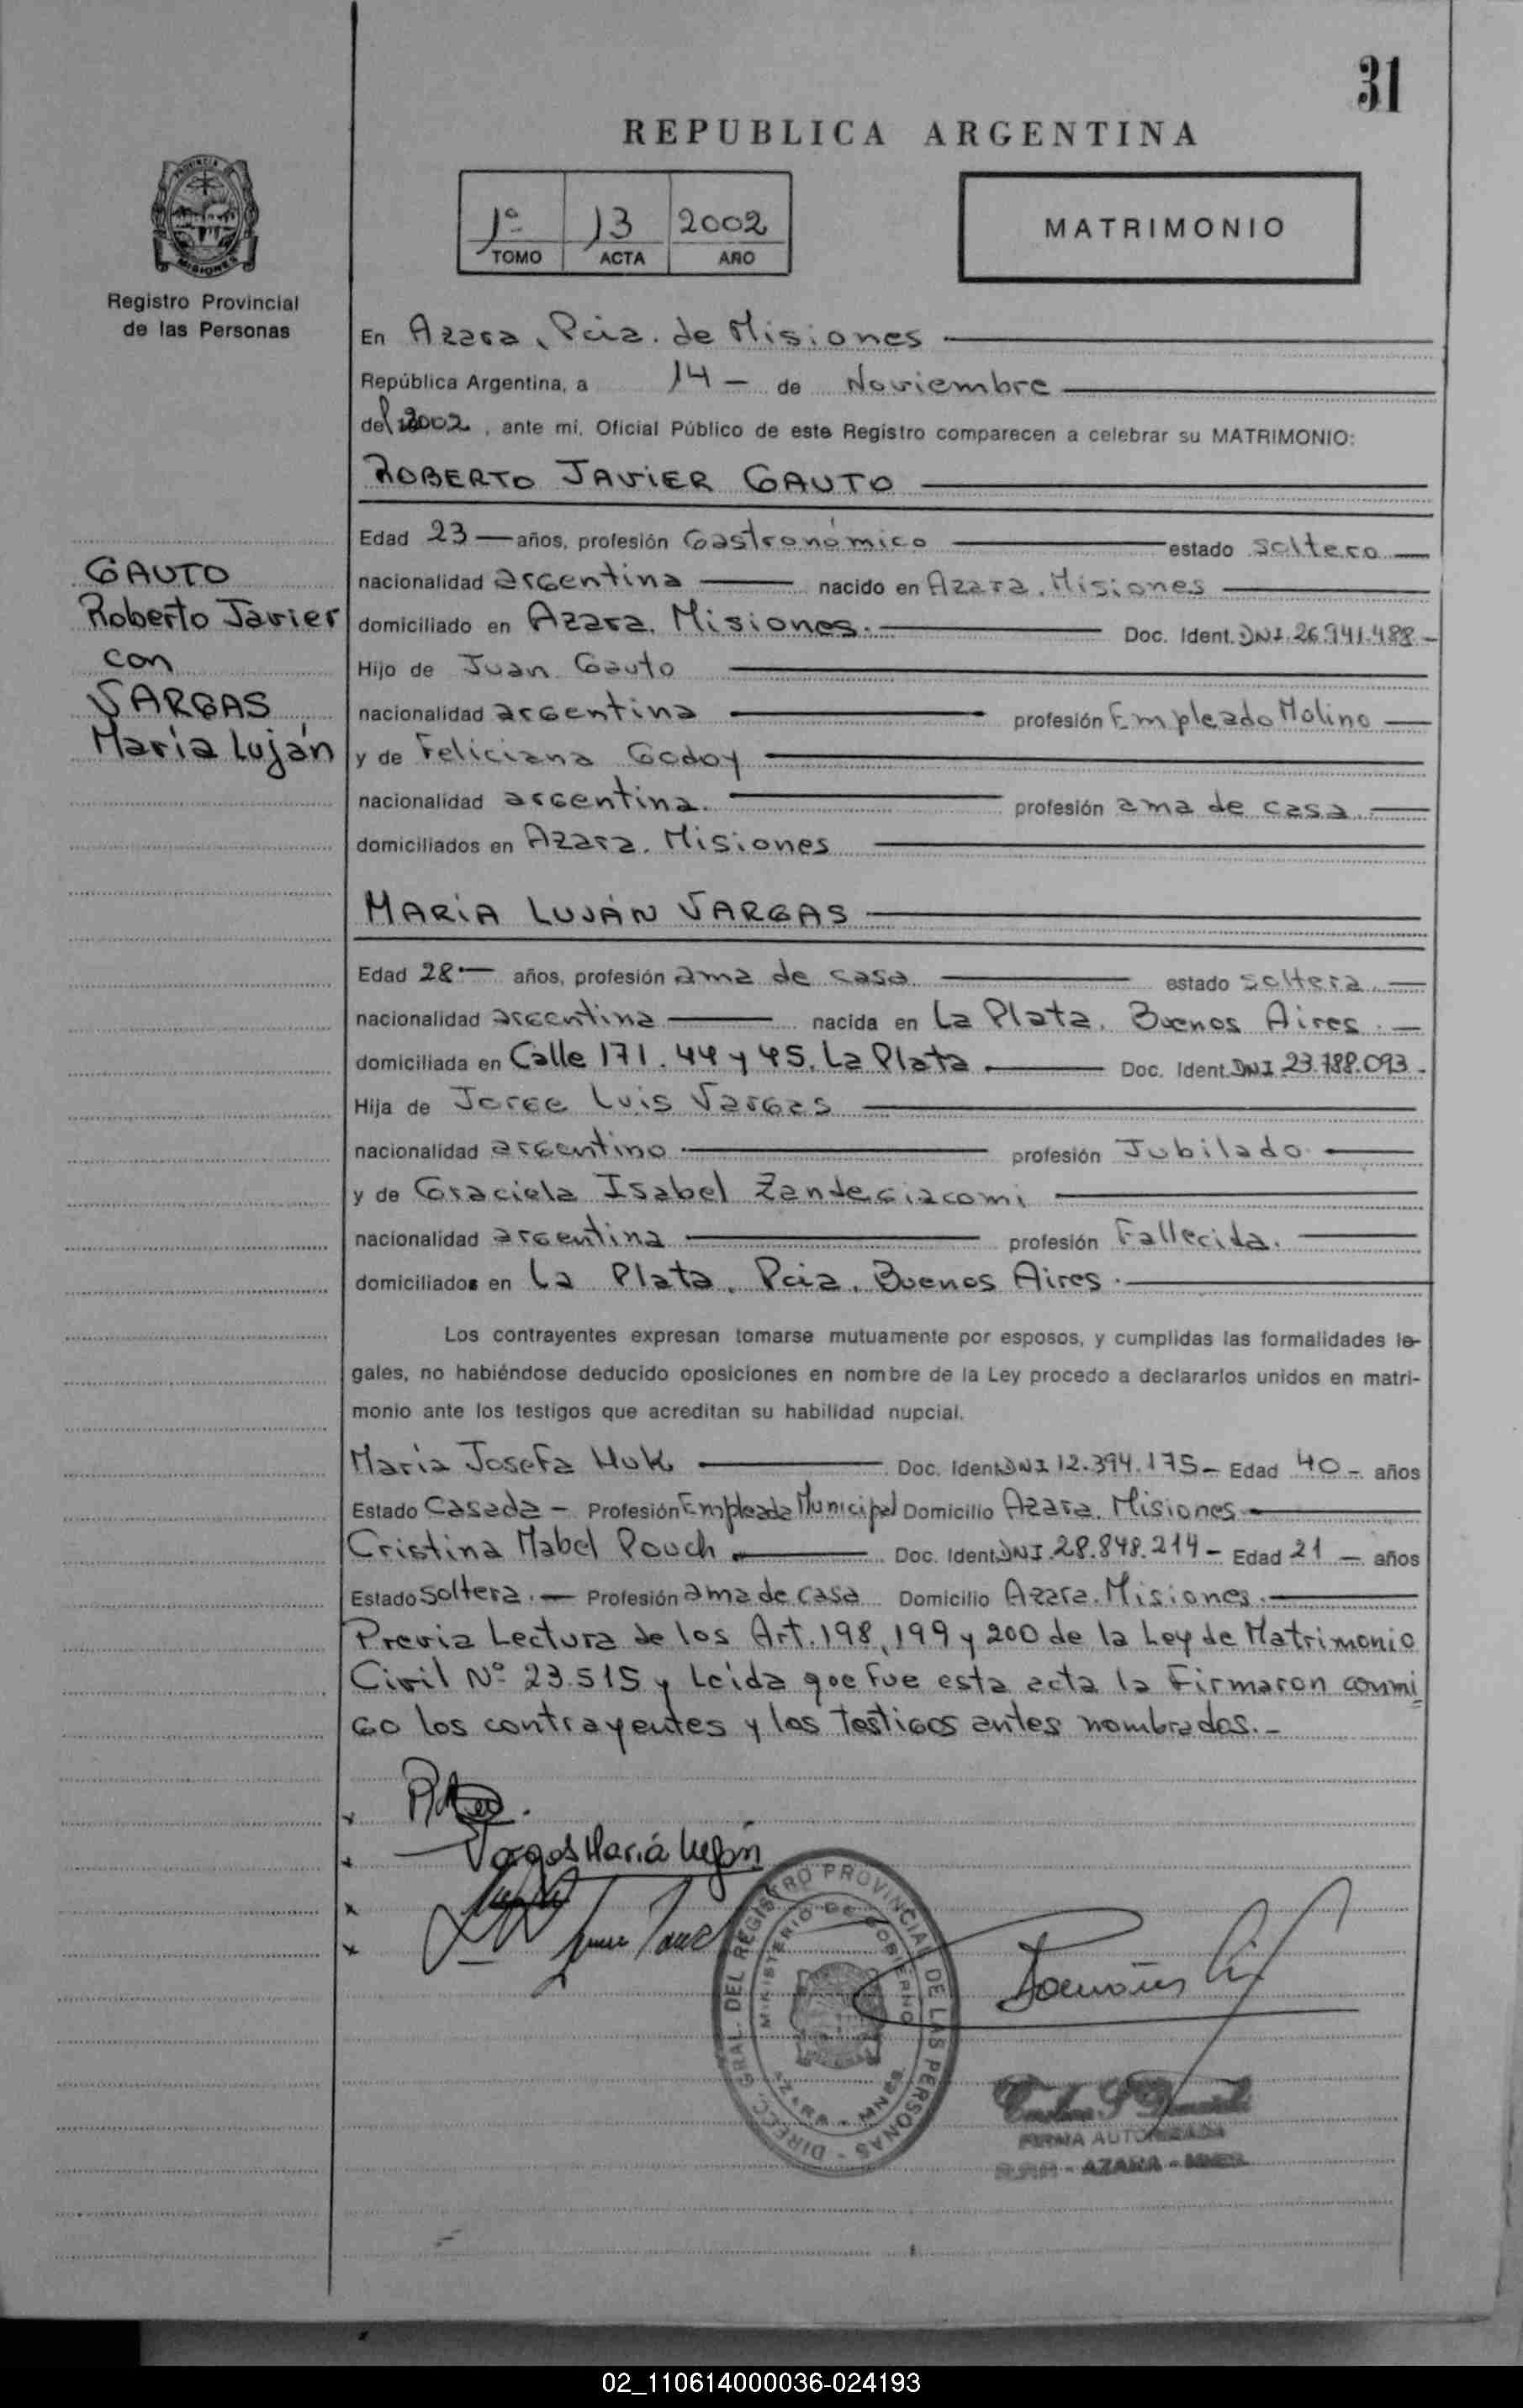 31
REPUBLICA ARGENTINA
1º 13 2002
TOMO ACTA AÑO
MATRIMONIO
PROVINCIA
MISIONES
Registro Provincial
de las Personas
En Azara, Pcia. de Misiones
República Argentina, a 14 - de Noviembre
del 2002, ante mí, Oficial Público de este Registro comparecen a celebrar su MATRIMONIO:
ROBERTO JAVIER GAUTO
Edad 23 — años, profesión Gastronómico estado soltero
nacionalidad argentina nacido en Azara. Misiones
domiciliado en Azara. Misiones. Doc. Ident. DNI. 26.941.488-
Hijo de Juan Gauto
nacionalidad argentina profesión Empleado Molino
y de Feliciana Godoy
nacionalidad argentina. profesión ama de casa
domiciliados en Azara. Misiones
GAUTO
Roberto Javier
con
VARGAS
María Luján
MARIA LUJÁN VARGAS
Edad 28 — años, profesión ama de casa estado soltera
nacionalidad argentina nacida en La Plata. Buenos Aires.
domiciliada en Calle 171. 44 y 45. La Plata Doc. Ident. DNI 23.788.093-
Hija de Jorge Luis Vargas
nacionalidad argentino profesión Jubilado
y de Graciela Isabel Zandegiacomi
nacionalidad argentina profesión Fallecida.
domiciliados en La Plata. Pcia. Buenos Aires.
Los contrayentes expresan tomarse mutuamente por esposos, y cumplidas las formalidades le-
gales, no habiéndose deducido oposiciones en nombre de la Ley procedo a declararlos unidos en matri-
monio ante los testigos que acreditan su habilidad nupcial.
Maria Josefa Huk Doc. Ident. DNI 12.394.175- Edad 40 - años
Estado Casada - Profesión Empleada Municipal Domicilio Azara. Misiones
Cristina Mabel Pouch Doc. Ident. DNI. 28.848.214- Edad 21 - años
Estado soltera. — Profesión ama de casa Domicilio Azara. Misiones.
Previa Lectura de los Art. 198, 199 y 200 de la Ley de Matrimonio
Civil Nº 23.515 y Leida que fue esta acta la Firmaron conmi
go los contrayentes y los testigos antes nombrados.-
Vargas María Luján
DIRECC. GRAL. DEL REGISTRO PROVINCIAL DE LAS PERSONAS
MINISTERIO DE GOBIERNO
AZARA - MNES
FIRMA AUTORIZADA
AZARA - MNES
02_110614000036-024193